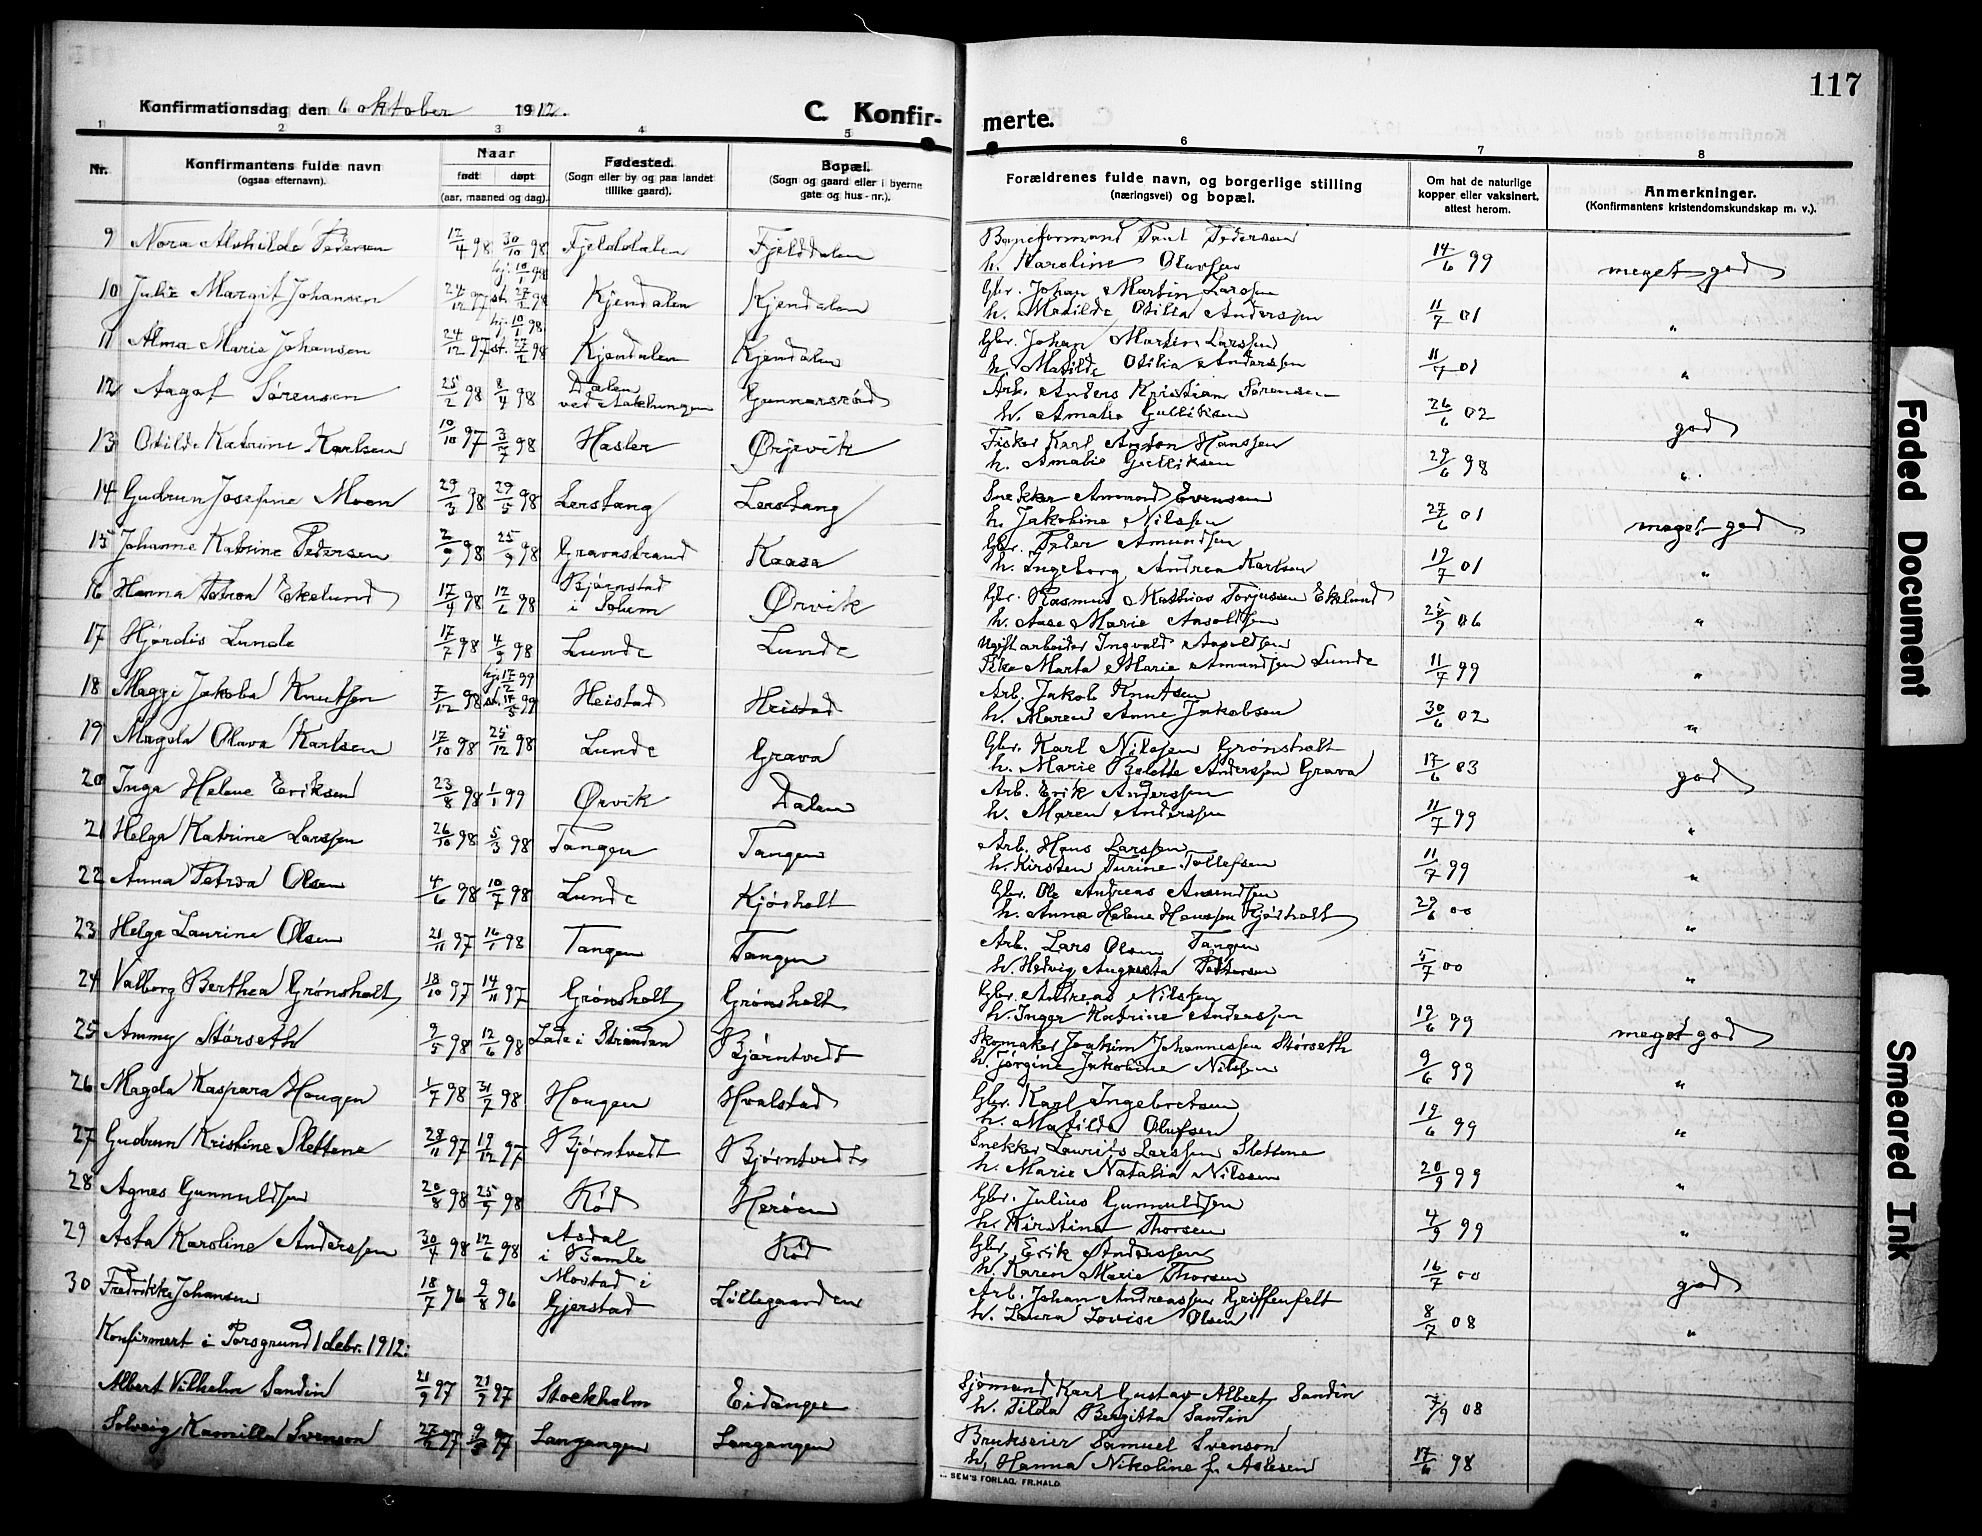 117
Konfirmationsdag den 6 oktober 1912.
C. Konfirmerte.
1 2 3 4 5 6 7 8
Nr.
Konfirmantens fulde navn
(ogsaa efternavn).
Naar
født døpt
(aar, maaned og dag).
Fødested.
(Sogn eller by og paa landet
tillike gaard).
Bopæl.
(Sogn og gaard eller i byerne
gate og hus-nr.).
Forældrenes fulde navn, og borgerlige stilling
(næringsvei) og bopæl.
Om hat de naturlige
kopper eller vaksinert,
attest herom.
Anmerkninger.
(Konfirmantens kristendomskundskap m. v.).
9 Nora Alvhilde Pedersen 12/4 98 30/10 98 Fjelddalen Fjelddalen Baneformand Paul Pedersen
h. Karoline Olavsen 14/6 99 meget god
10 Julie Margit Johansen 24/12 97 hj. 10/1 98 st. 27/2 98 Kjendalen Kjendalen Gbr. Johan Martin Larssen
h. Matilde Otilia Anderssen 11/7 01 "
11 Alma Marie Johansen 24/12 97 hj. 10/1 98 st. 27/2 98 Kjendalen Kjendalen Gbr. Johan Martin Larssen
h. Matilde Otilia Anderssen 11/7 01 "
12 Aagot Sørensen 25/2 98 8/4 98 Dalen
ved Aaklungen Gunnarsrød Arb. Anders Kristian Sørensen
h. Amalie Gulliksen 26/6 02 god
13 Otilde Katrine Karlsen 10/10 97 3/7 98 Hasler Ørjevik Fisker Karl Anton Hanssen
h. Amalie Gulliksen 29/6 98 "
14 Gudrun Josefine Moen 29/3 98 29/5 98 Lerstang Lerstang Snekker Amund Evensen
h. Jakobine Nilssen 27/6 01 meget god
15 Johanne Katrine Pedersen 2/9 98 25/9 98 Gravastrand Kaasa Gbr. Peder Amundsen
h. Ingeborg Andrea Karlsen 19/7 01 "
16 Hanna Petrea Ekelund 17/4 98 12/6 98 Bjørnstad
i Solum Ørvik Gbr. Rasmus Mathias Torjussen Ekelund
h. Aase Marie Ansoldsen 25/9 06 "
17 Hjørdis Lunde 17/7 98 4/9 98 Lunde Lunde Ugift arbeider Ingvald
Pike Marta Marie Amundsen Lunde 11/7 99 "
18 Maggi Jakoba Knutsen 7/12 98 hj. 17/2 99 st. 17/5 99 Heistad Heistad Arb. Jakob Knutsen
h. Maren Anne Jakobsen 30/6 02 "
19 Magda Olava Karlsen 17/10 98 25/12 98 Lunde Grava Gbr. Karl Nilssen Grønsholt
h. Marie Bolette Anderssen Grava 17/6 03 god
20 Inga Helene Eriksen 23/8 98 1/1 99 Ørvik Dalen Arb. Erik Anderssen
h. Maren Anderssen 11/7 99 "
21 Helga Katrine Larssen 26/10 98 5/3 98 Tangen Tangen Arb. Hans Larssen
h. Kirsten Turine Tollefsen 11/7 99 "
22 Anna Petrea Olsen 4/6 98 10/7 98 Lunde Kjørholt Gbr. Ole Andreas Amundsen
h. Anna Helene Hanssen Kjørholt 29/6 00 "
23 Helga Laurine Olsen 21/11 97 16/1 98 Tangen Tangen Arb. Lars Olsen Tangen
h. Hedvig Augusta Pettersen 5/7 00 "
24 Valborg Berthea Grønsholt 18/10 97 14/11 97 Grønsholt Grønsholt Gbr. Andreas Nilssen
h. Inger Katrine Anderssen 19/6 99 meget god
25 Ammy Størseth 9/5 98 12/6 98 Lade i Strinden Bjørntvedt Skomaker Joakim Johannessen Størseth
h. Jørgine Jakobine Nilssen 9/6 99 "
26 Magda Kaspara Hougen 1/7 98 31/7 98 Hougen Hvalstad Gbr. Karl Ingebretsen
h. Matilde Olufsen 19/6 99 "
27 Gudrun Kristine Slettene 28/11 97 19/12 97 Bjørntvedt Bjørntvedt Snekker Laurits Larssen Slettene
h. Marie Natalia Nilssen 20/9 99 "
28 Agnes Gunnuldsen 20/8 98 25/9 98 Rød Herøen Gbr. Julius Gunnuldsen
h. Kirstine Thorsen 4/9 99 "
29 Asta Karoline Anderssen 30/4 98 12/6 98 Asdal
i Bamle Rød Gbr. Erik Anderssen
h. Karen Marie Thorsen 16/7 00 god
30 Fredrikke Johansen 18/7 96 9/8 96 Mostad i
Gjerstad Lillegaarden Arb. Johan Andreassen Griffenfelt
h. Laura Lovise Olsen 8/7 08 "
Konfirmert i Porsgrund 1 debr. 1912:
Albert Vilhelm Sandin 21/9 97 21/9 97 Stockholm Eidanger Sjømand Karl Gustav Albert Sandin
h. Tilda Bergitta Sandin 7/9 08
Solveig Kamilla Svenson 97 97 Langangen Langangen Brukseier Samuel Svenson
h. Hanna Nikoline f. Aslesen 17/6 98
SEM'S FORLAG, FR.HALD.
Faded Document
Smeared Ink